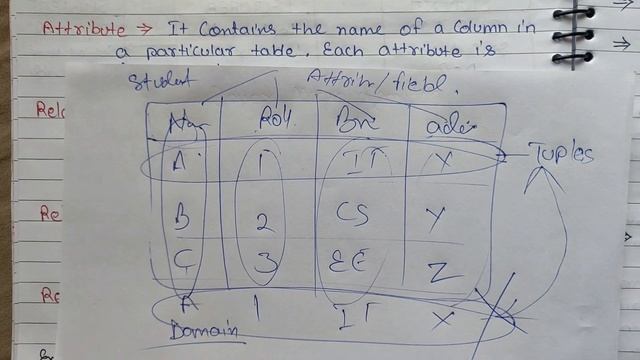 Attribute → It contains the name of a column in
a particular table. Each attribute is
Student Attrim/field.
Rela
Nam Roll Bra
A 1 IT X
Tuples
B 2 CS Y
Re
C 3 EE Z
Re
A 1 IT X
Domain